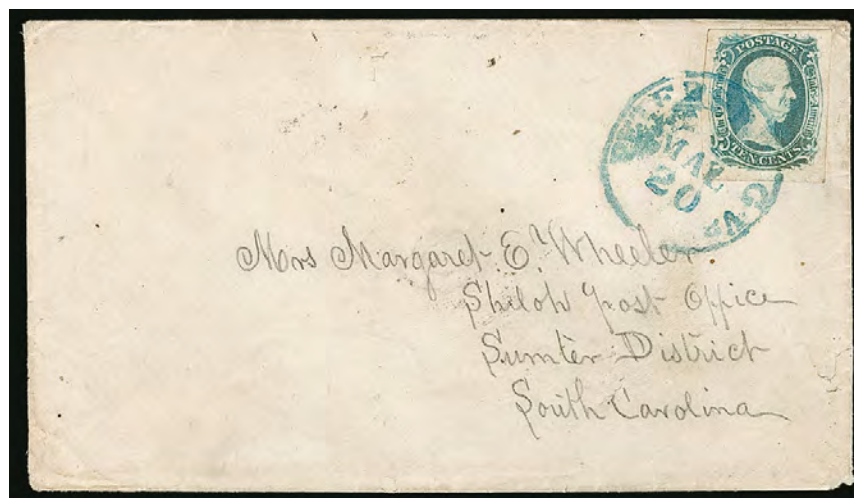 POSTAGE
TEN CENTS
MAR
20
Va
Mrs Margaret E. Wheeler
Shiloh Post Office
Sumter District
South Carolina